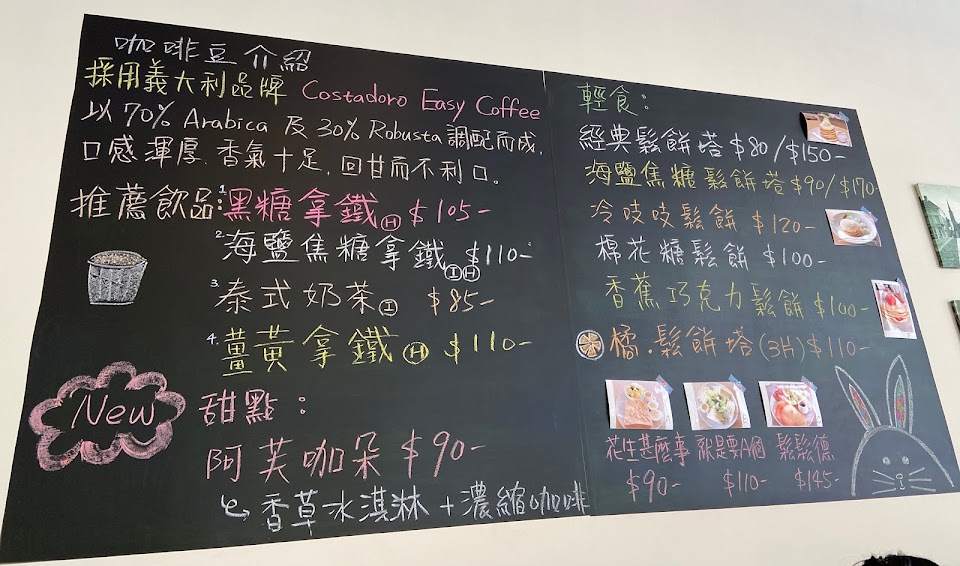 咖啡豆介紹
採用義大利品牌 Costadoro Easy Coffee
以70% Arabica 及30% Robusta 調配而成,
口感渾厚.香氣十足.回甘而不利口。
推薦飲品:1.黑糖拿鐵Ⓗ $105-
2.海鹽焦糖拿鐵ⒾⒽ $110-
3.泰式奶茶Ⓘ $85-
4.薑黃拿鐵Ⓗ $110-
New
甜點:
阿芙咖朵 $90-
↳香草冰淇淋+濃縮咖啡
輕食:
經典鬆餅塔 $80/$150-
海鹽焦糖鬆餅塔 $90/$170-
冷吱吱鬆餅 $120-
棉花糖鬆餅 $100-
香蕉巧克力鬆餅 $100-
橘.鬆餅塔(3片) $110-
花生甚麼事 $90-
就是要A個 $110-
鬆鬆德 $145-